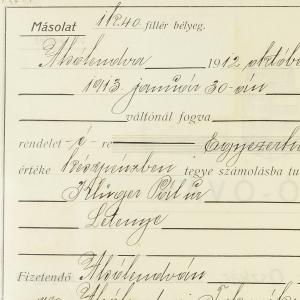 Másolat 1 k 40 fillér bélyeg.
Alsólendva 1912 októbe
1913 január 30-án
váltónál fogva
rendelet -é- re Egyezerk
értéke készpénzben tegye számolásba tu
Klinger Pál ur
Letenye
Fizetendő Alsólendván